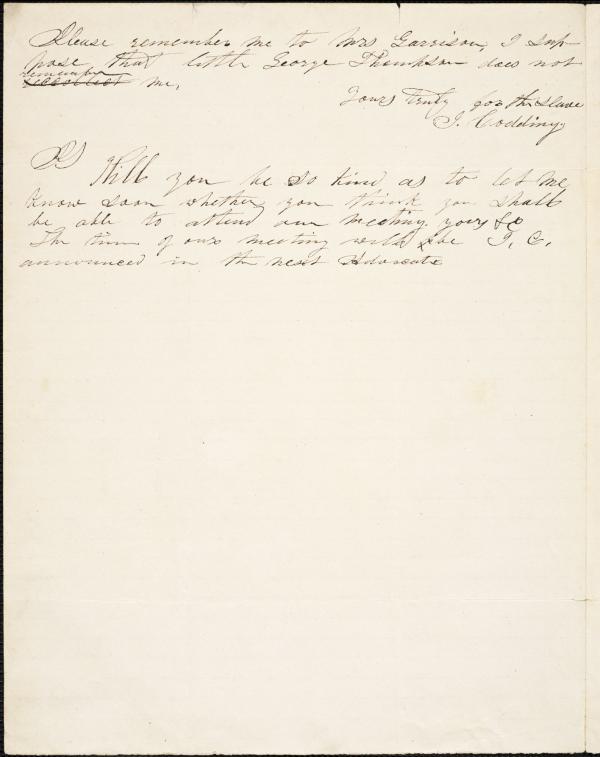 Please remember me to Mrs Garrison, I sup-
pose that little George Thompson does not
remember
recollect me.
Yours truly for the slave
I. Codding
PS Will you be so kind as to let me
know soon whether you think you shall
be able to attend our meeting. yours &c
The time of our meeting will be I. C.
announced in the next Advocate